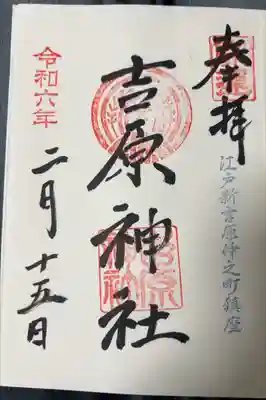 奉拝
江戸新吉原仲之町鎮座
吉原神社
令和六年
二月十五日